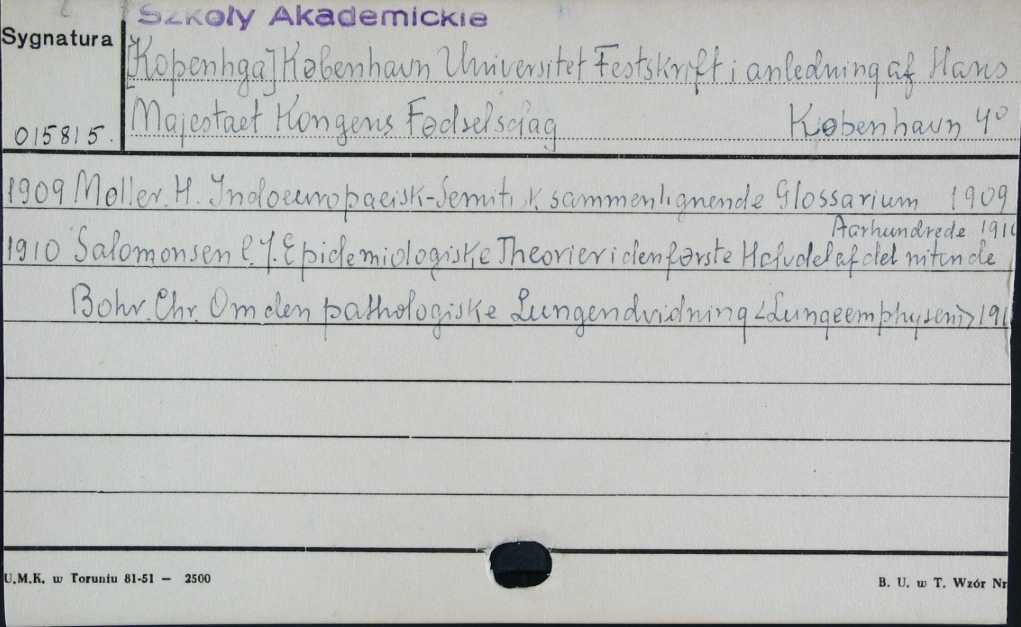 Szkoły Akademickie
Sygnatura
[Kopenhga] København Universitet Festskrift i anledning af Hans
015815. Majestaet Kongens Fødselsdag København 4°
1909 Moller. H. Indoeuropaeisk-Semitisk sammenlignende Glossarium 1909
Aarhundrede 191
1910 Salomonsen C. J. Epidemiologiske Theorier i den første Halvdel af det nitende
Bohr. Chr. Om den pathologiske Lungendvidning <Lungeemphysem> 191
U.M.K. w Toruniu 81-51 — 2500
B. U. w T. Wzór Nr